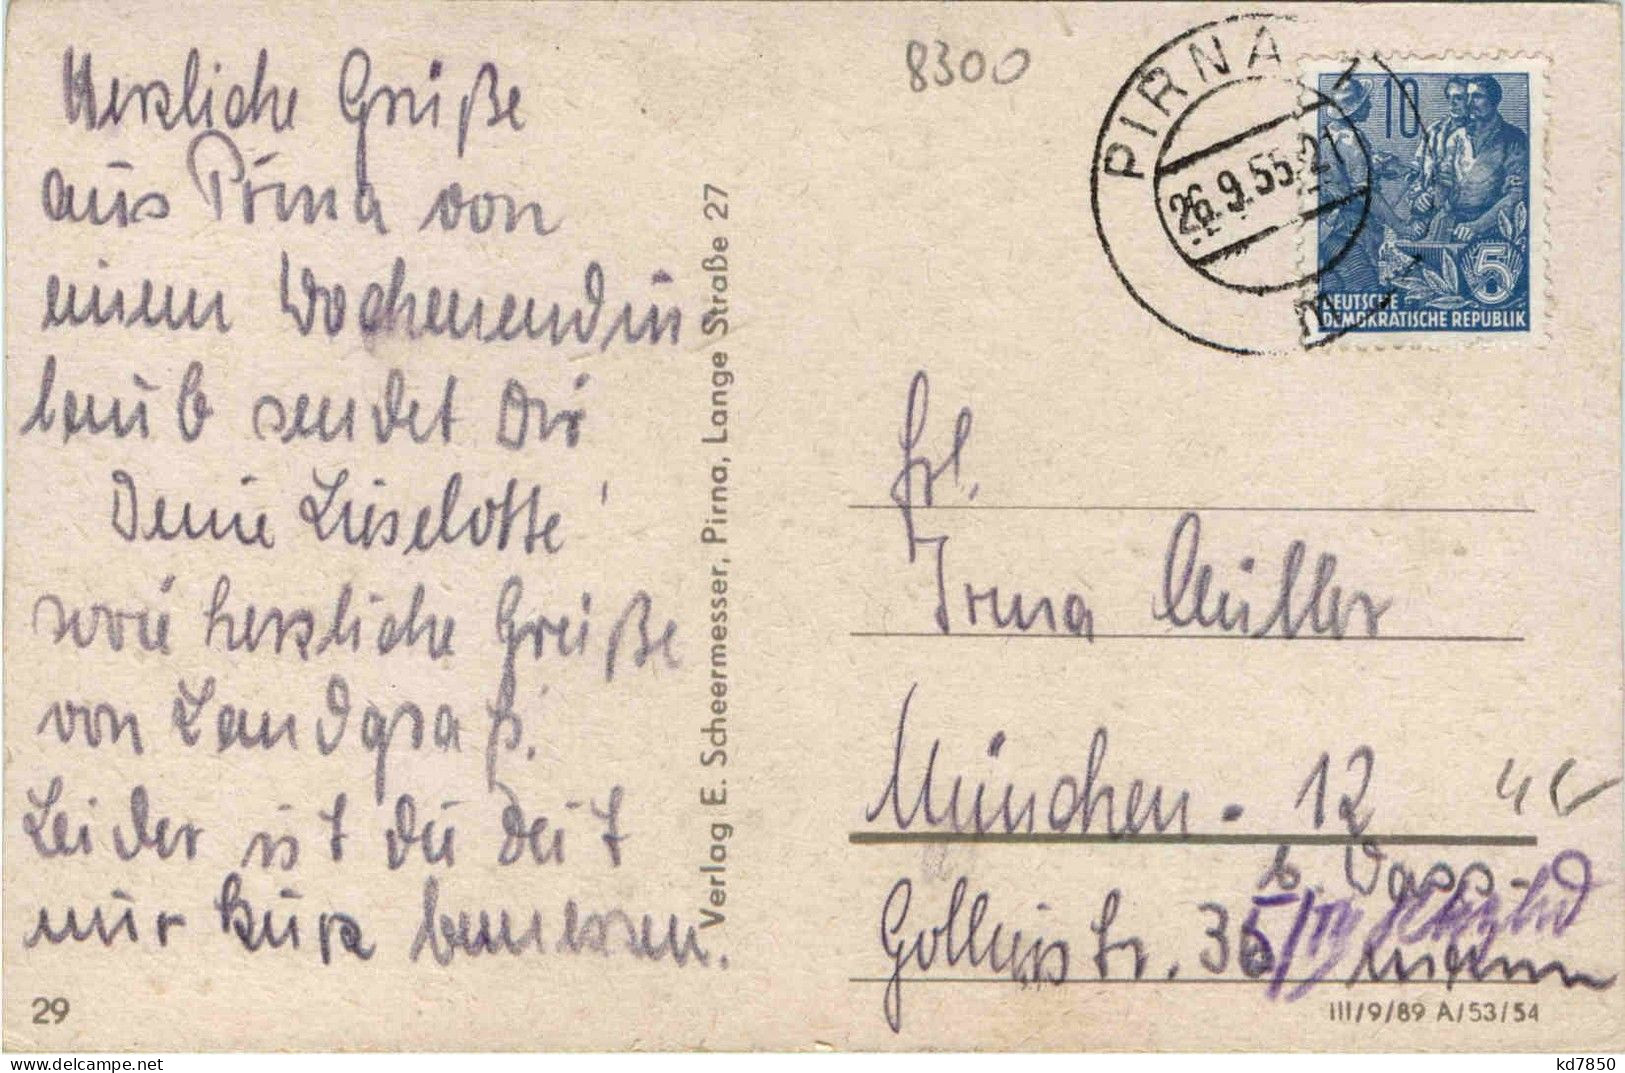 Herzliche Grüße
aus Pirna von
einem Wochenendur
laub sendet Dir
Deine Lieselotte!
sowie herzliche Grüße
von Landgraf.
Leider ist die Zeit
nur kurz bemessen.
29
Verlag E. Scheermesser, Pirna, Lange Straße 27
8300
PIRNA
26.9.55.-21
10
5
DEUTSCHE
DEMOKRATISCHE REPUBLIK
Frl.
Irma Müller
München - 12
b.
Gollierstr. 36
mann
III/9/89 A/53/54
kd7850